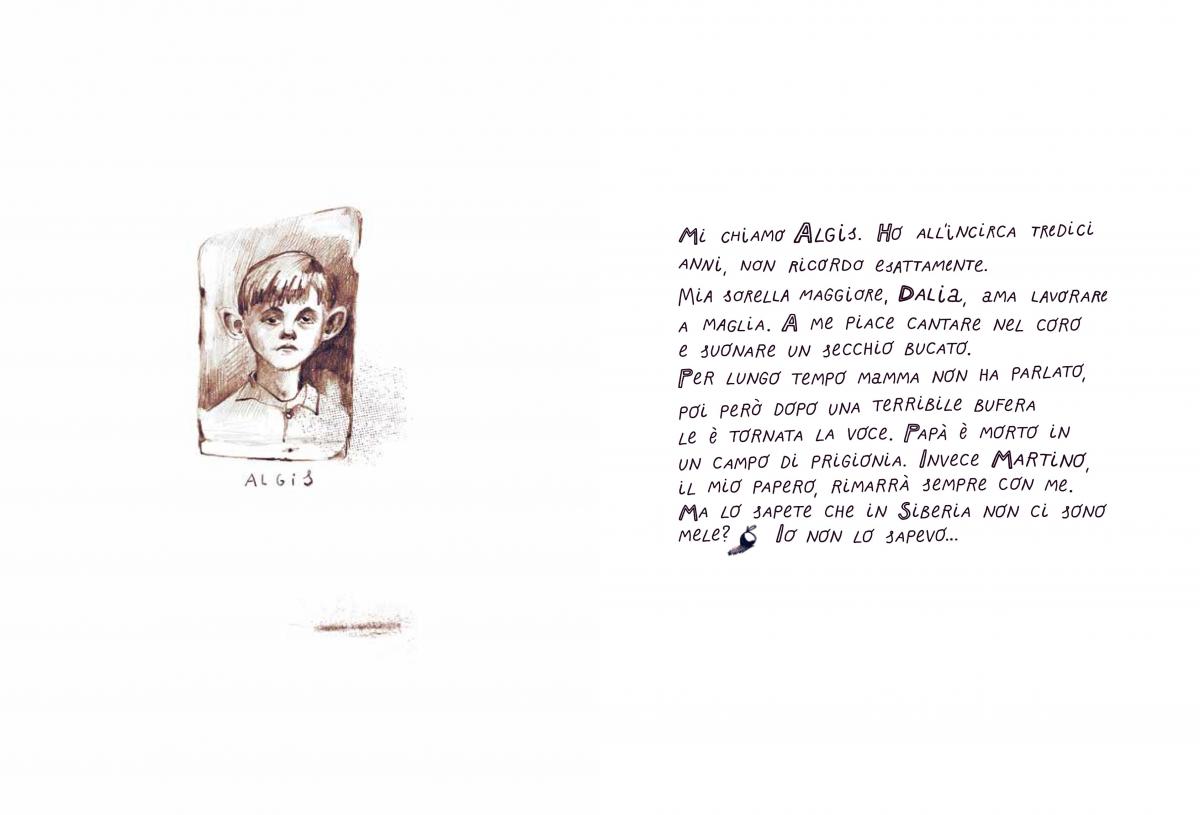 ALGIS
Mi chiamo Algis. Ho all'incirca tredici
anni, non ricordo esattamente.
Mia sorella maggiore, Dalia, ama lavorare
a maglia. A me piace cantare nel coro
e suonare un secchio bucato.
Per lungo tempo mamma non ha parlato,
poi però dopo una terribile bufera
le è tornata la voce. Papà è morto in
un campo di prigionia. Invece Martino,
il mio papero, rimarrà sempre con me.
Ma lo sapete che in Siberia non ci sono
mele? Io non lo sapevo...